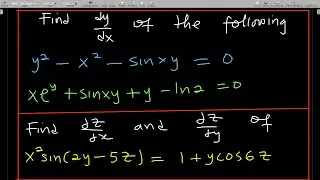 Find dy/dx of the following
y² - x² - sinxy = 0
xe^y + sinxy + y - ln2 = 0
Find dz/dx and dz/dy of
x² sin(2y - 5z) = 1 + ycos6z